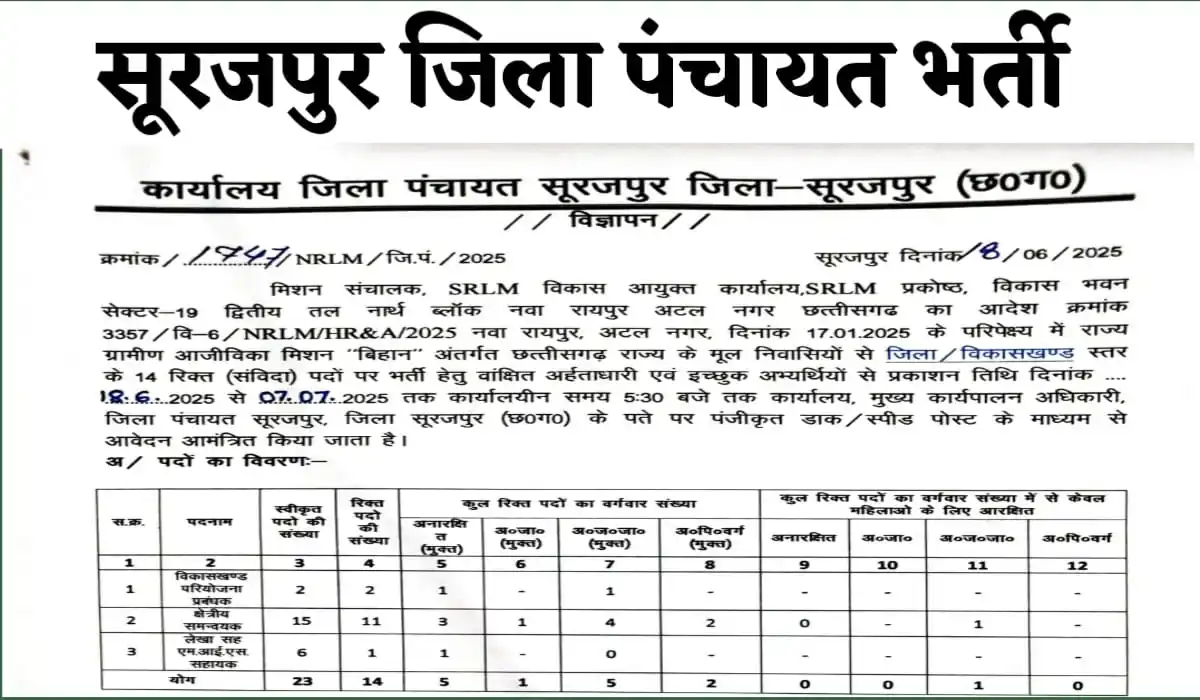 सूरजपुर जिला पंचायत भर्ती
कार्यालय जिला पंचायत सूरजपुर जिला–सूरजपुर (छ0ग0)
// विज्ञापन//
क्रमांक/..1747../NRLM/जि.पं./2025 सूरजपुर दिनांक/18/06/2025
मिशन संचालक, SRLM विकास आयुक्त कार्यालय,SRLM प्रकोष्ठ, विकास भवन
सेक्टर–19 द्वितीय तल नार्थ ब्लॉक नवा रायपुर अटल नगर छत्तीसगढ का आदेश क्रमांक
3357/वि–6/NRLM/HR&A/2025 नवा रायपुर, अटल नगर, दिनांक 17.01.2025 के परिपेक्ष्य में राज्य
ग्रामीण आजीविका मिशन "बिहान" अंतर्गत छत्तीसगढ़ राज्य के मूल निवासियों से जिला/विकासखण्ड स्तर
के 14 रिक्त (संविदा) पदों पर भर्ती हेतु वांक्षित अर्हताधारी एवं इच्छुक अभ्यर्थियों से प्रकाशन तिथि दिनांक ....
18.6..2025 से 07.07..2025 तक कार्यालयीन समय 5:30 बजे तक कार्यालय, मुख्य कार्यपालन अधिकारी,
जिला पंचायत सूरजपुर, जिला सूरजपुर (छ0ग0) के पते पर पंजीकृत डाक/स्पीड पोस्ट के माध्यम से
आवेदन आमंत्रित किया जाता है।
अ/ पदों का विवरणः–
स.क्र. पदनाम स्वीकृत पदो की संख्या रिक्त पदो की संख्या कुल रिक्त पदों का वर्गवार संख्या कुल रिक्त पदों का वर्गवार संख्या में से केवल महिलाओ के लिए आरक्षित
अनारक्षित (मुक्त) अ०जा० (मुक्त) अ०ज०जा० (मुक्त) अ०पि०वर्ग (मुक्त) अनारक्षित अ०जा० अ०ज०जा० अ०पि०वर्ग
1 2 3 4 5 6 7 8 9 10 11 12
1 विकासखण्ड परियोजना प्रबंधक 2 2 1 - 1 - - - - -
2 क्षेत्रीय समन्वयक 15 11 3 1 4 2 0 - 1 -
3 लेखा सह एम.आई.एस. सहायक 6 1 1 - 0 - - - - -
योग 23 14 5 1 5 2 0 0 1 0